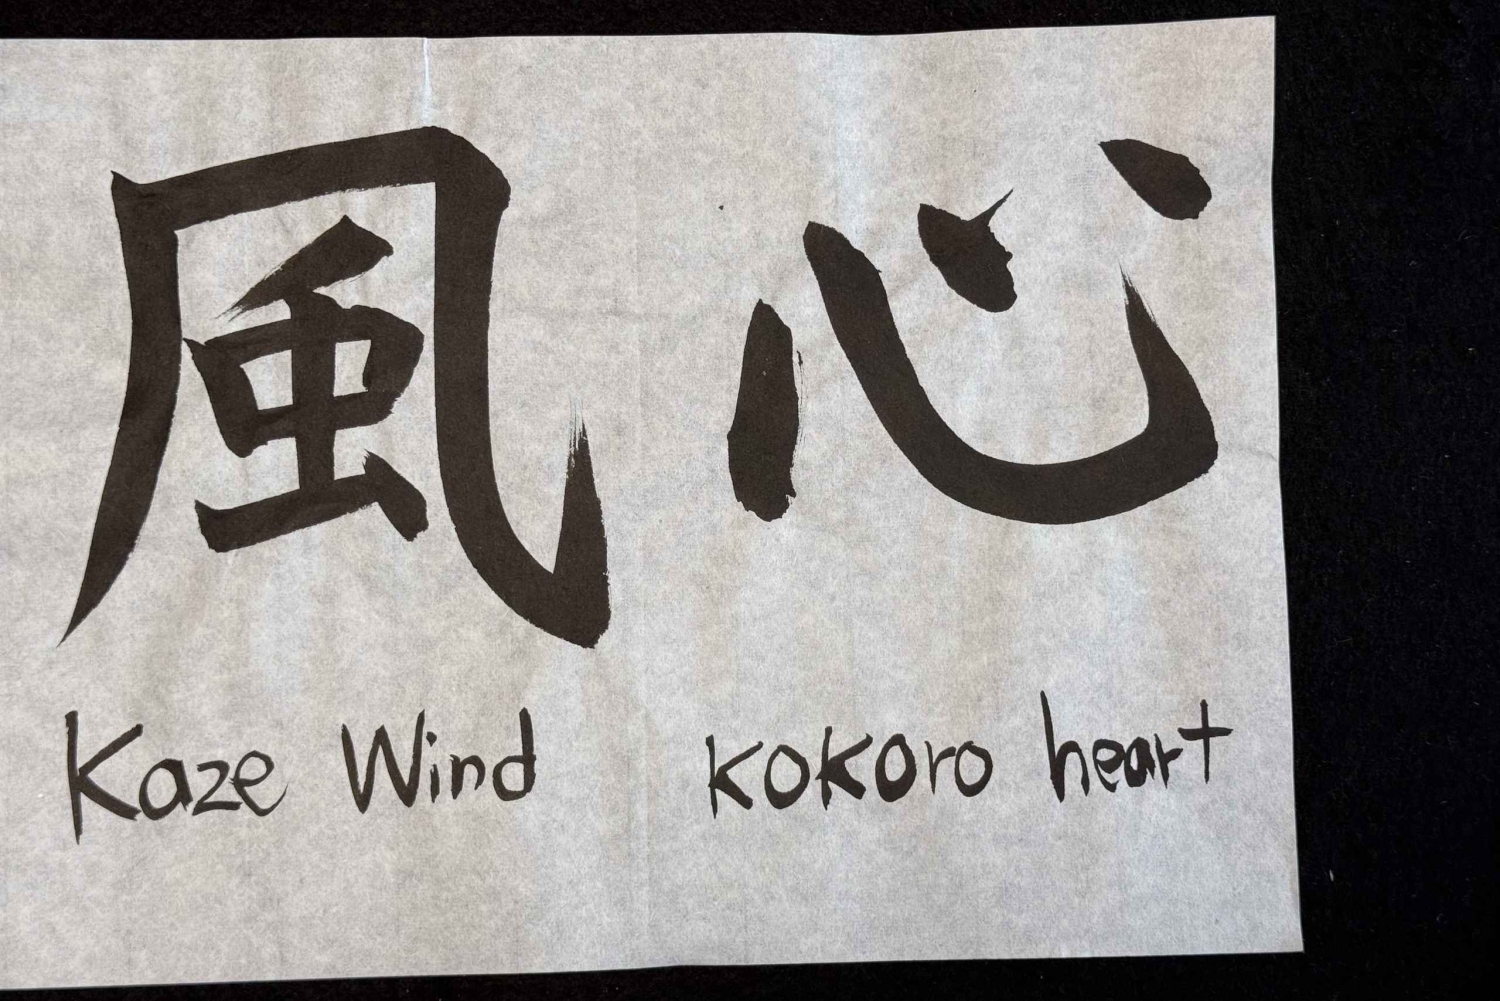 風 心
Kaze Wind kokoro heart